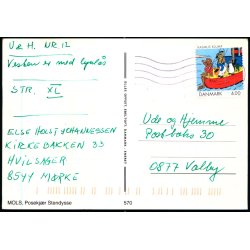 U & H. NR 12
Vesken er med lynlås
STR. XL
ELSE HOLST JOHANNESSEN
KIRKEBAKKEN 33
HVILSAGER
8544 MØRKE
RASMUS KLUMP
DANMARK 6.00
Ude og Hjemme
Postboks 30
0877 Valby
MOLS, Posekjær Stendysse
570